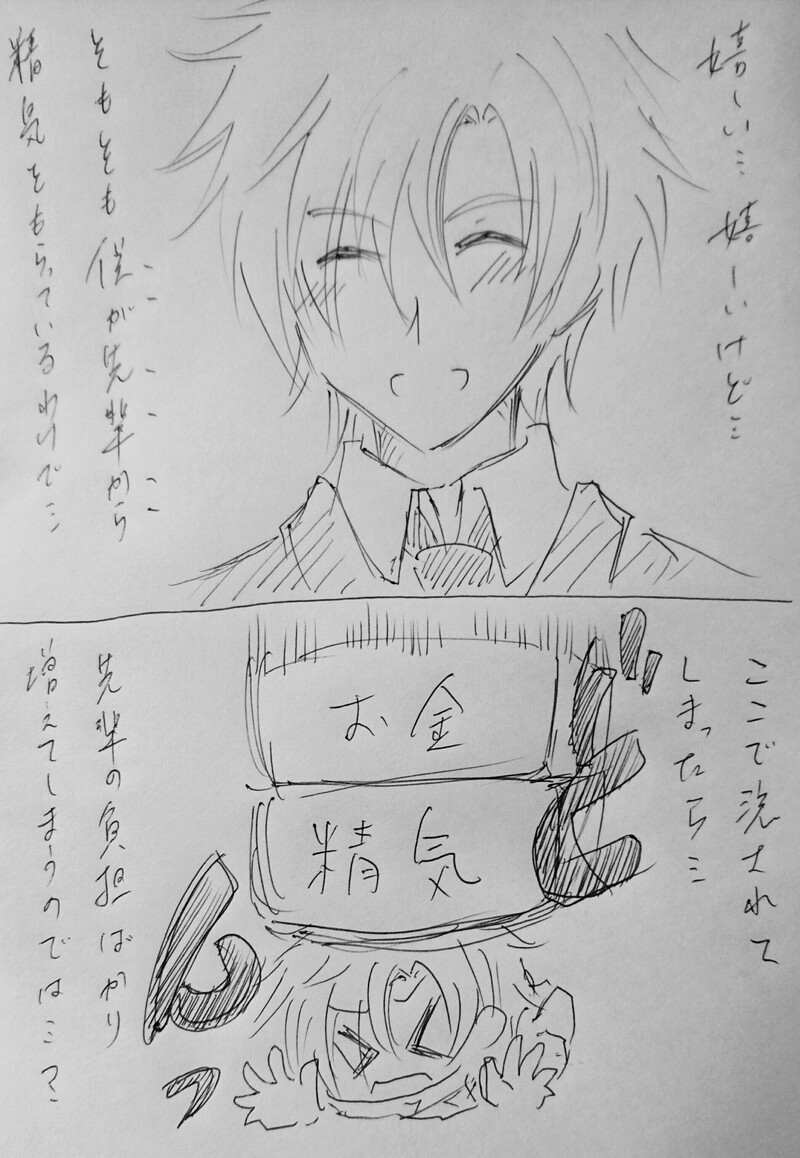 嬉しい…嬉しいけど…
そもそも僕が先輩から
精気をもらっているわけで…
ここで流されて
しまったら…
お金
精気
どしっ
先輩の負担ばかり
増えてしまうのでは…？